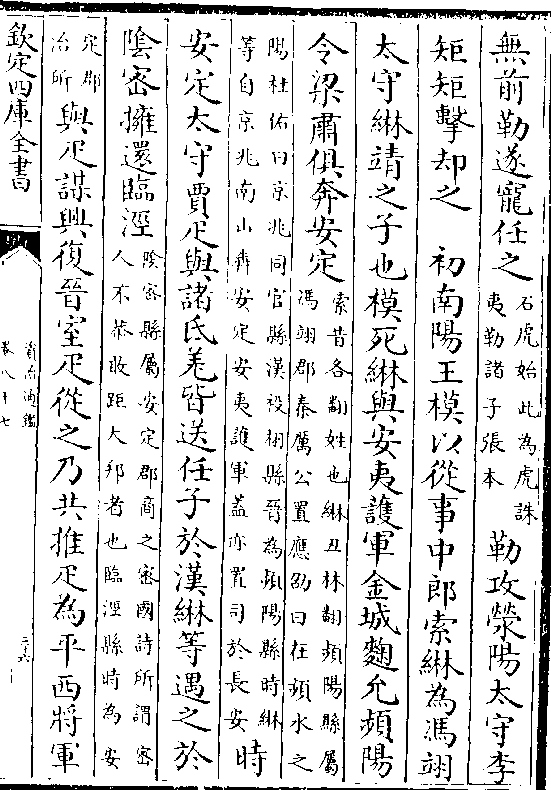 無前勒遂寵任之石虎始此為虎誅夷勒諸子張本勒攻滎陽太守李
矩矩擊却之　初南陽王模以從事中郎索綝為馮翊
太守綝靖之子也模死綝與安夷護軍金城麴允頻陽
令梁肅俱奔安定索昔各翻姓也綝丑林翻頻陽縣屬馮翊郡秦厲公置應劭曰在頻水之
陽杜佑曰京兆同官縣漢祋栩縣晉為頻陽縣時綝等自京兆南山犇安定安夷護軍蓋亦置司於長安時
安定太守賈疋與諸氐羌皆送任子於漢綝等遇之於
陰密擁還臨涇陰密縣屬安定郡商之密國詩所謂密人不恭敢距大邦者也臨涇縣時為安
定郡治所與疋謀興復晉室疋從之乃共推疋為平西將軍
欽定四庫全書
資治通鑑
卷八十七
二十六